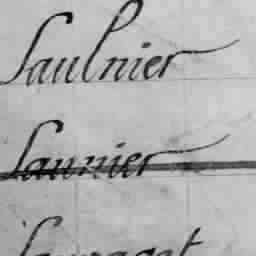 Saulnier
Saunier